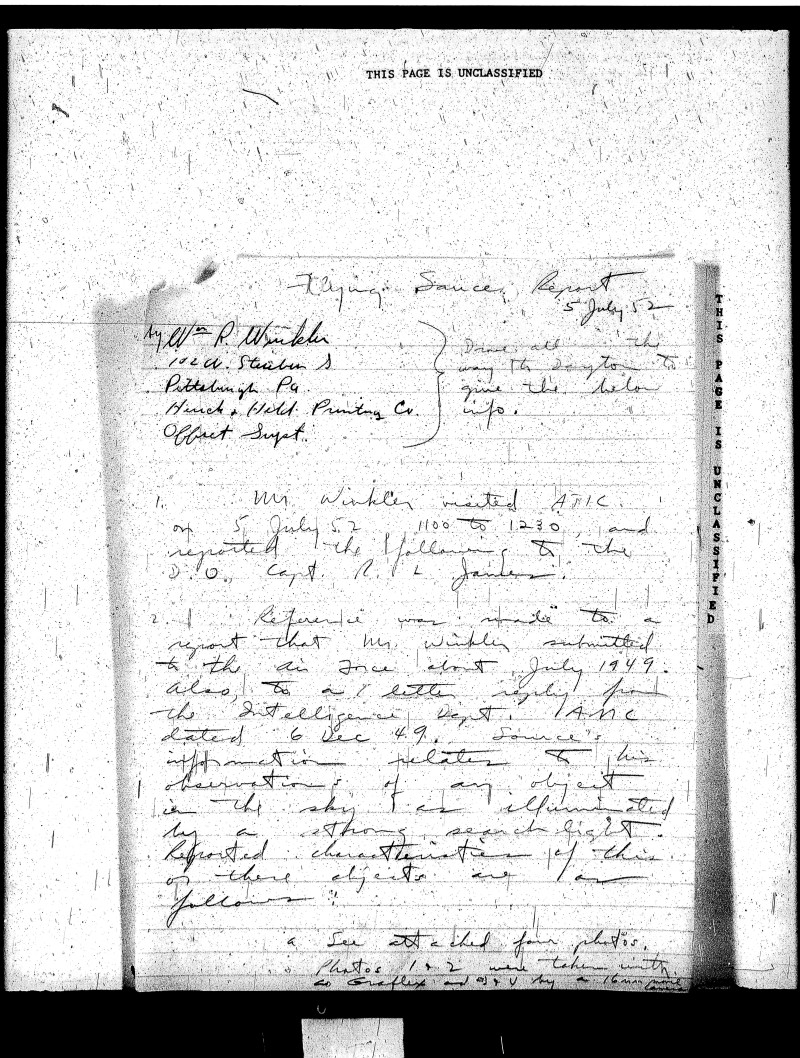 THIS PAGE IS UNCLASSIFIED
Flying Saucer Report
5 July 52
by Wm R. Winkler
102 W. Steuben S
Pittsburgh Pa.
Printing Co.
Offset Supt.
Drove all the
way to Dayton to
give the below
info.
1. Mr Winkler visited ATIC
on 5 July 52 1100 to 1230, and
reported the following to the
D.O., Capt. R. L James.
2. Reference was made to a
report that Mr. Winkler submitted
to the Air Force about July 1949.
Also, to a letter reply from
the Intelligence Dept. AMC
dated 6 Dec 49. Source's
information relates to his
observations of an object
in the sky as illuminated
by a strong search light.
Reported characteristics of this
or these objects are as
follows:
a See attached four photos.
Photos 1 & 2 were taken with
Graflex and 3 & 4 by a 16mm movie
camera
THIS PAGE IS UNCLASSIFIED